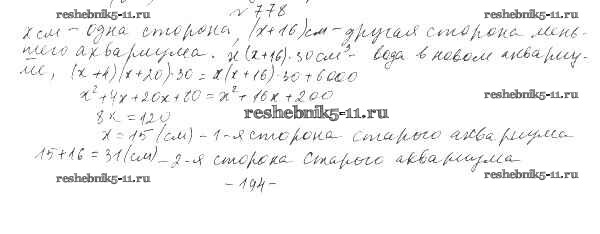 №778
reshebnik5-11.ru reshebnik5-11.ru
x см - одна сторона, (x+16)см - другая сторона мень-
шего аквариума. x(x+16)·30см³ - вода в новом аквариу-
ме, (x+4)(x+20)·30=x(x+16)·30+6000
x²+4x+20x+80=x²+16x+200
reshebnik5-11.ru
8x=120
x=15(см) - 1-я сторона старого аквариума
15+16=31(см) - 2-я сторона старого аквариума
reshebnik5-11.ru reshebnik5-11.ru
-194-